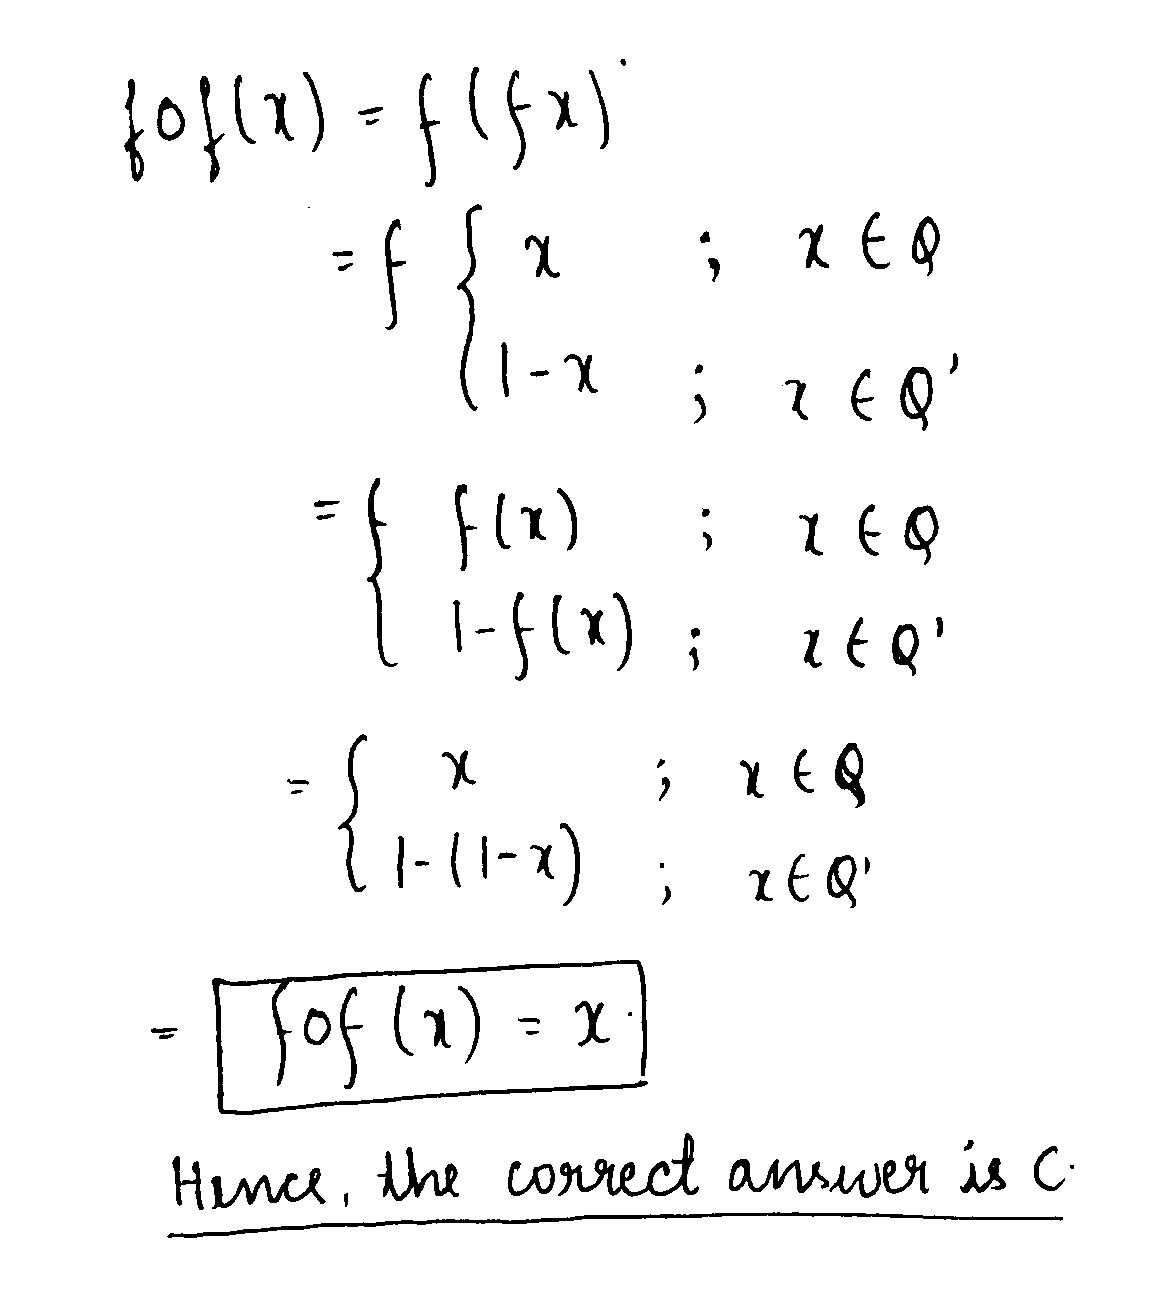 fof(x) = f(fx)
= f { x ; x ∈ Q
1-x ; x ∈ Q'
= { f(x) ; x ∈ Q
1-f(x) ; x ∈ Q'
= { x ; x ∈ Q
1-(1-x) ; x ∈ Q'
= fof(x) = x.
Hence, the correct answer is C.